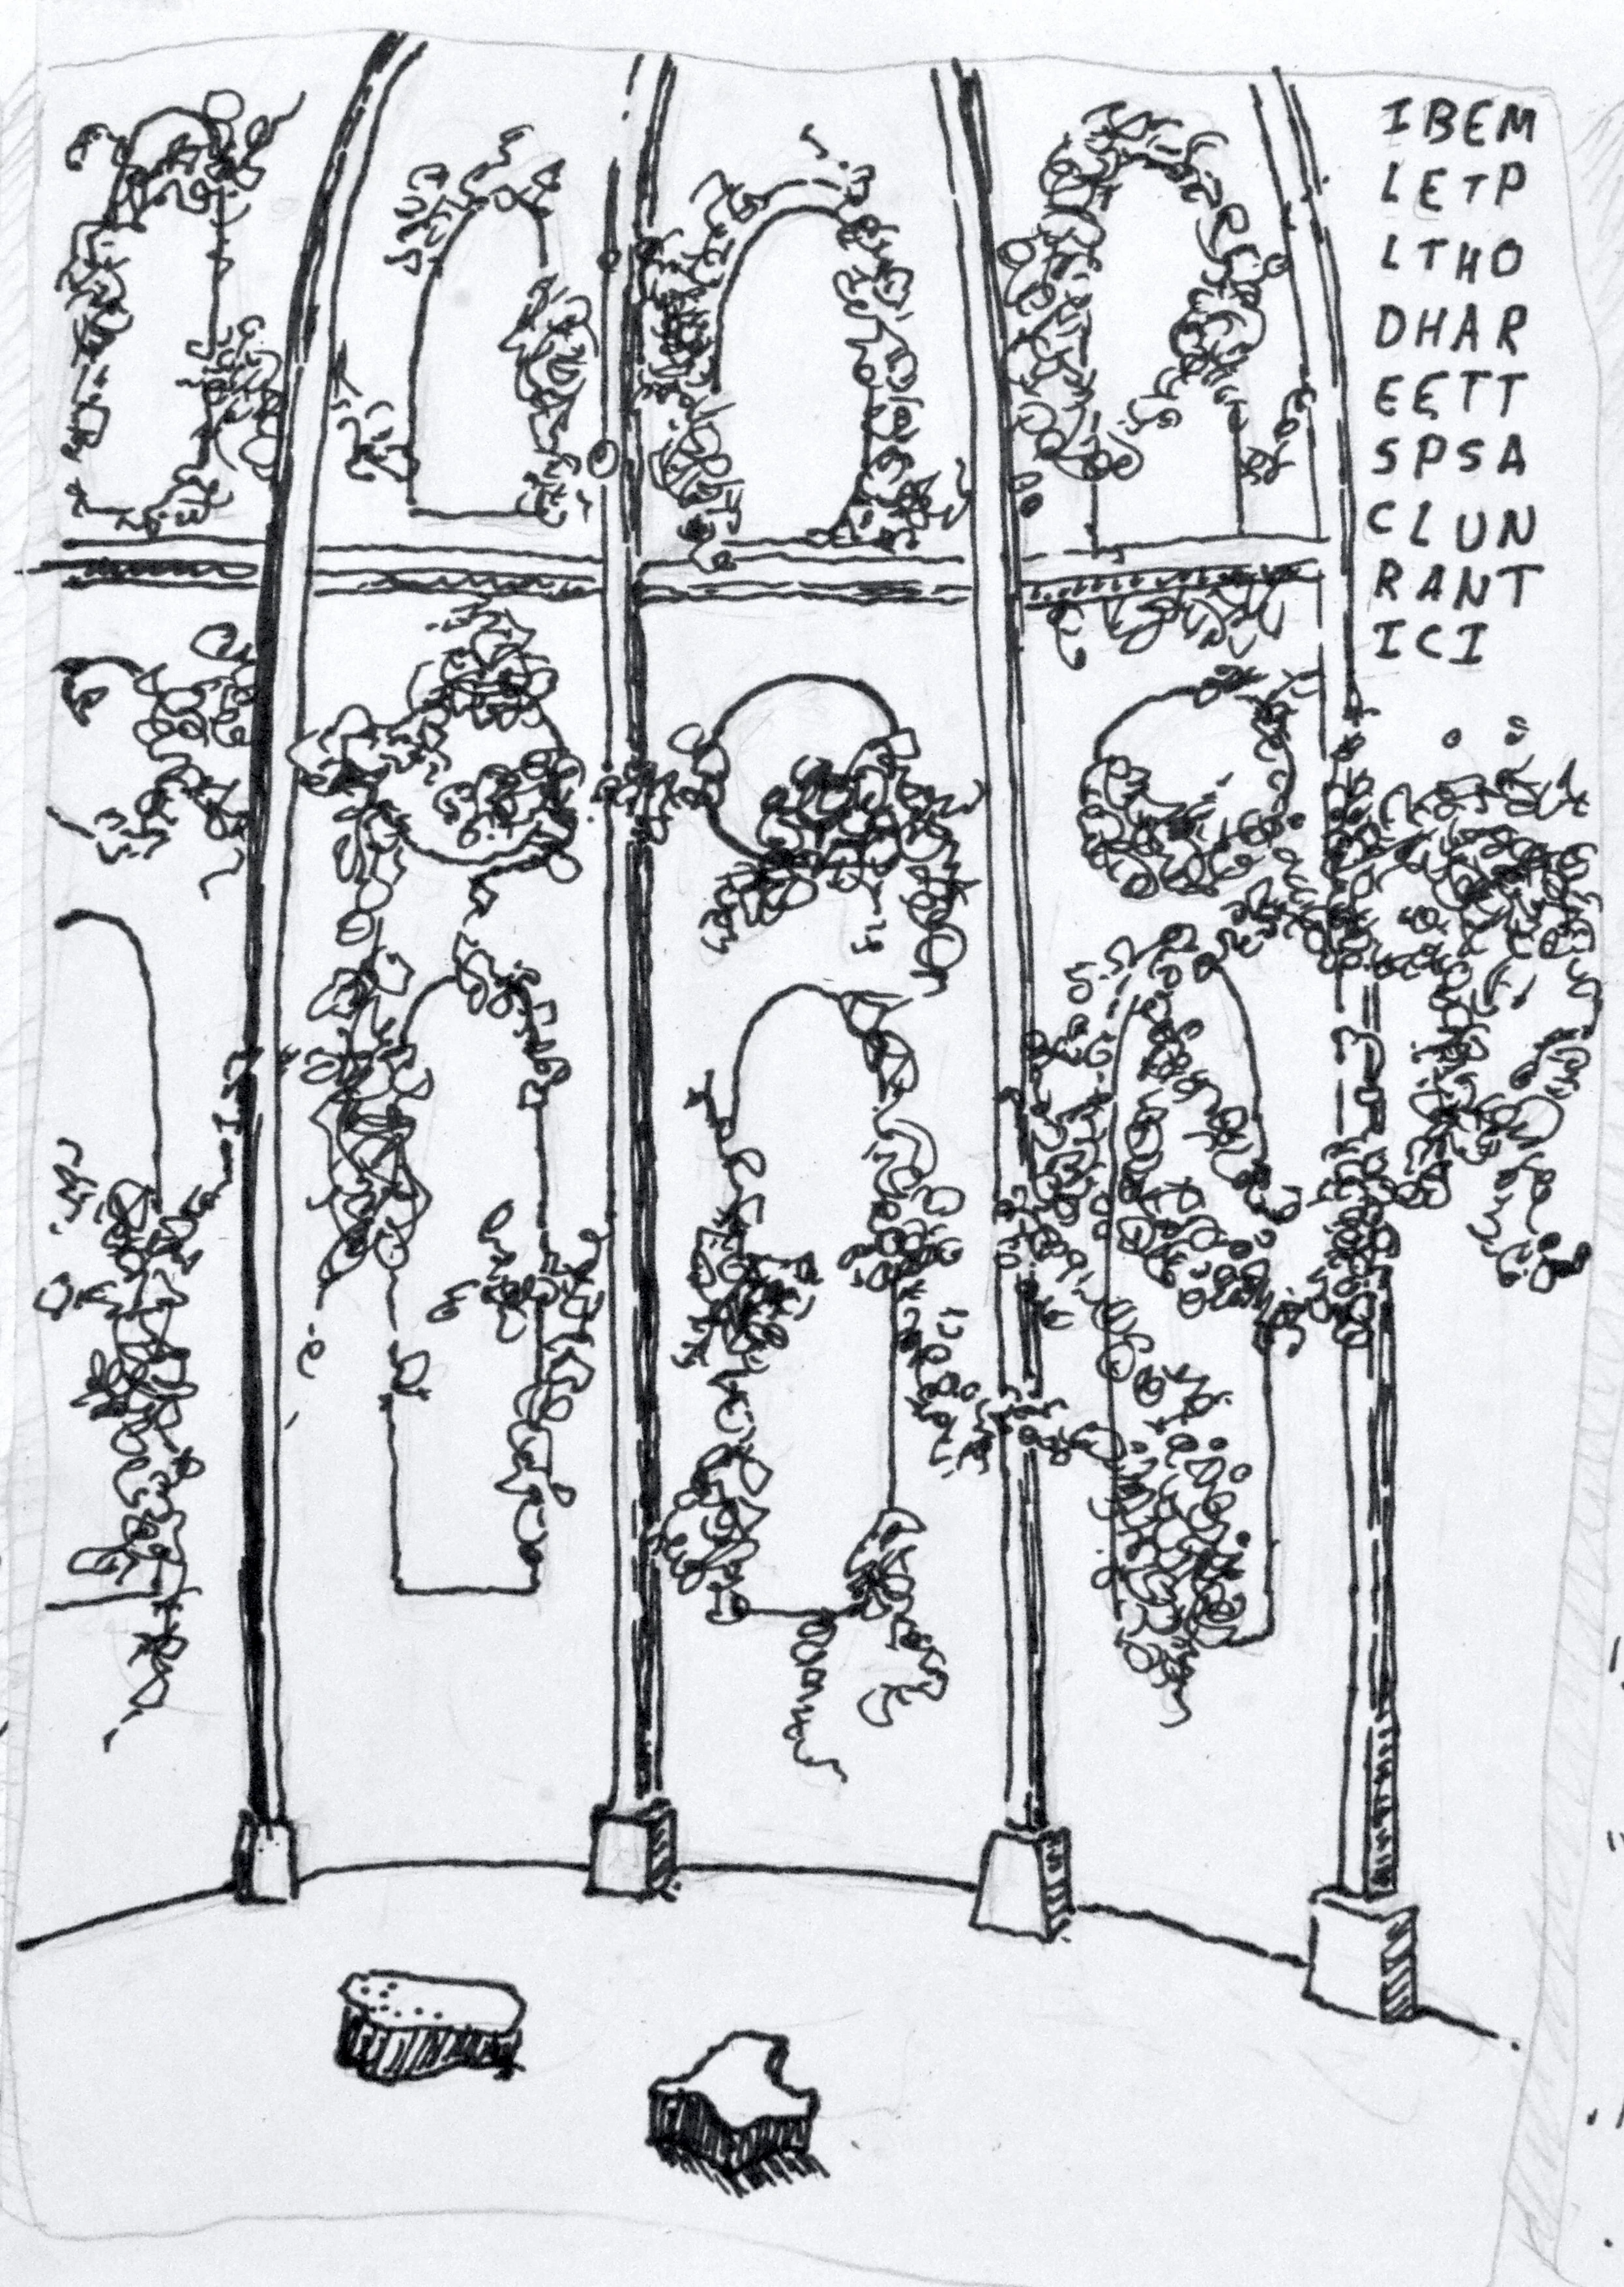 IBEM
LETP
LTHO
DHAR
EETT
SPSA
CLUN
RANT
ICI